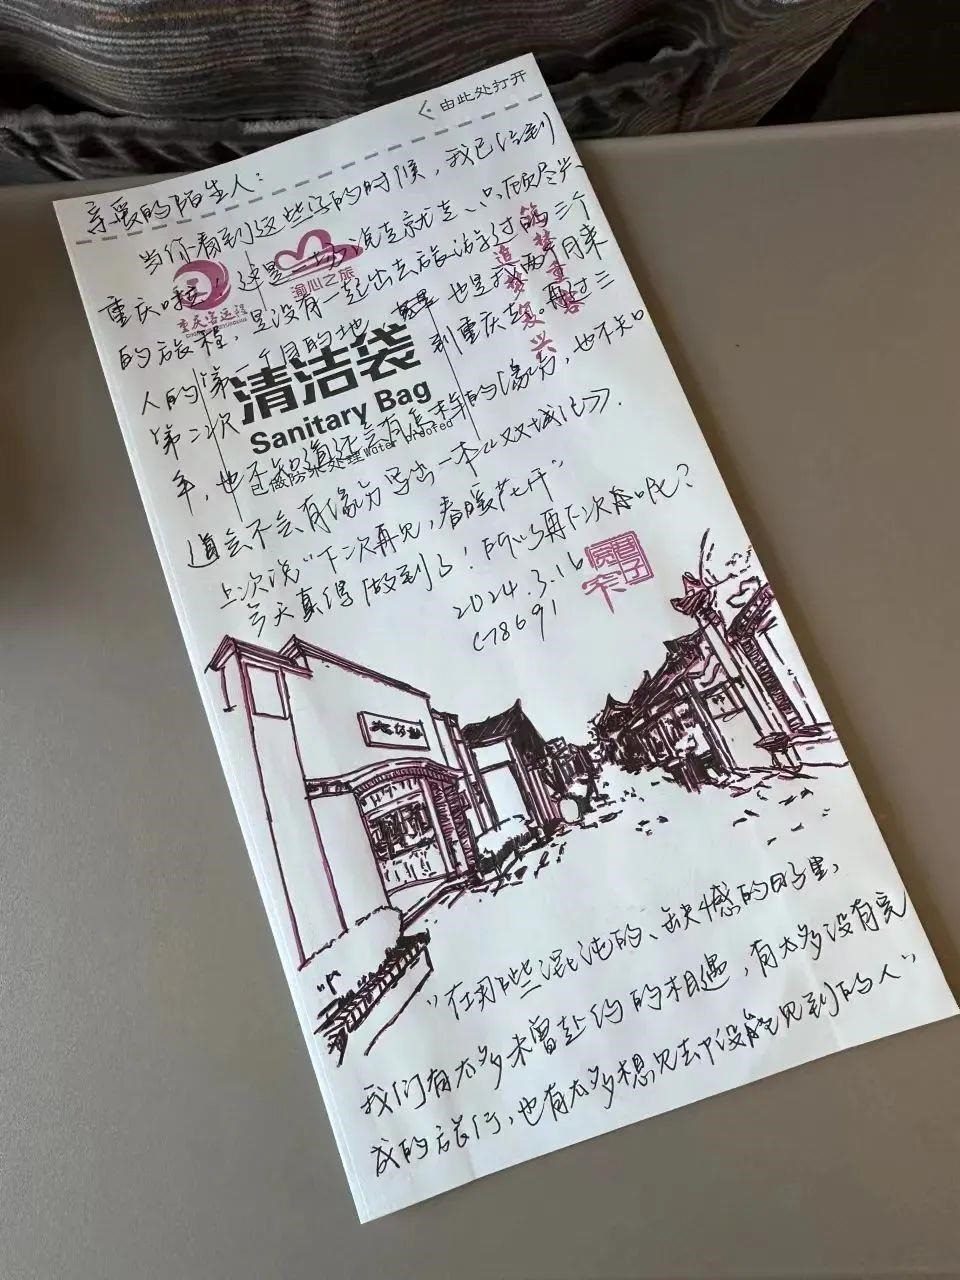 <由此处打开
亲爱的陌生人：
当你看到这些字的时候，我已经到
重庆啦！这是一场说走就走、只顾尽兴
的旅程，是没有一起出去旅游过的三个
人的第一个目的地，也是我两个月来
第二次到重庆。再过三
年，也不知道还会有怎样的缘分，也不知
道会不会有缘分写出一本《双城记》．
上次说“下次再见，春暖花开”
今天真得做到了！所以再下次呢？
2024.3.16
C78691
重庆客运段
渝心之旅
追梦复兴
清洁袋
Sanitary Bag
Water proofed
“在那些混沌的、缺憾的日子里，
我们有太多未曾赴约的相遇，有太多没有完
成的旅行，也有太多想见却没能见到的人”